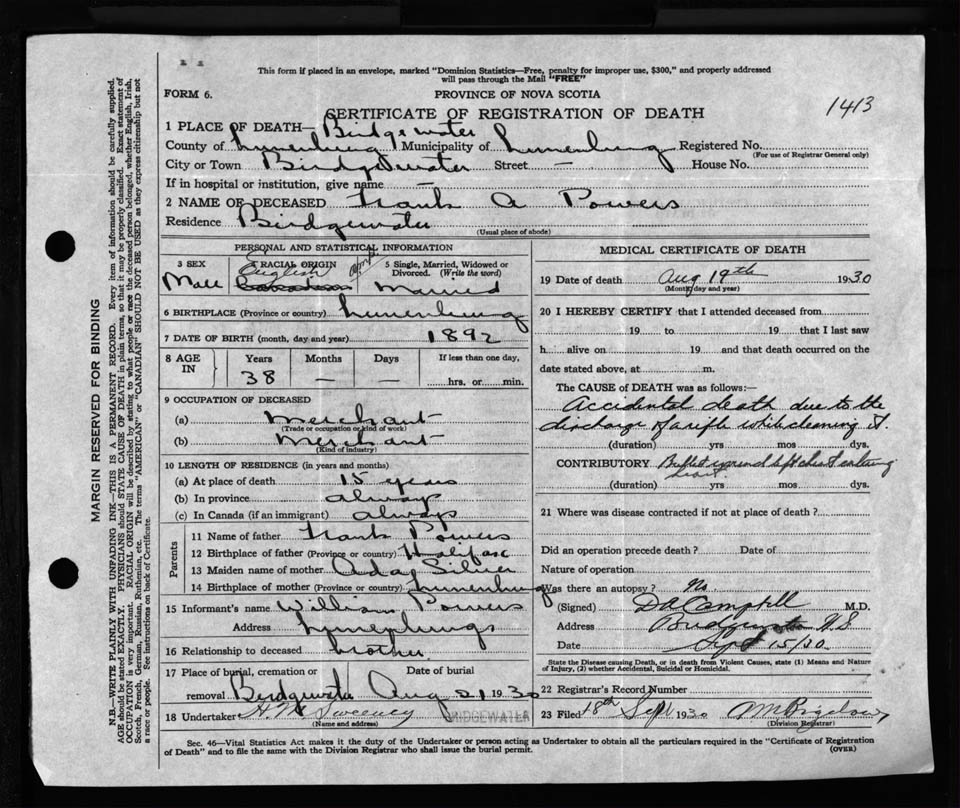 This form if placed in an envelope, marked "Dominion Statistics—Free, penalty for improper use, $300," and properly addressed
will pass through the Mail "FREE"
FORM 6.
PROVINCE OF NOVA SCOTIA
1413
CERTIFICATE OF REGISTRATION OF DEATH
1 PLACE OF DEATH— Bridgewater
County of Lunenburg Municipality of Lunenburg Registered No.
(For use of Registrar General only)
City or Town Bridgewater Street — House No.
If in hospital or institution, give name —
2 NAME OF DECEASED Frank A Powers
Residence Bridgewater
(Usual place of abode)
PERSONAL AND STATISTICAL INFORMATION
3 SEX
Male
4 RACIAL ORIGIN
English
5 Single, Married, Widowed or
Divorced. (Write the word)
Married
6 BIRTHPLACE (Province or country) Lunenburg
7 DATE OF BIRTH (month, day and year) 1892
8 AGE
IN
Years Months Days If less than one day,
38 — — hrs. or min.
9 OCCUPATION OF DECEASED
(a) Merchant
(Trade or occupation or kind of work)
(b) Merchant
(Kind of industry)
10 LENGTH OF RESIDENCE (in years and months)
(a) At place of death 15 years
(b) In province always
(c) In Canada (if an immigrant) always
Parents
11 Name of father Frank Powers
12 Birthplace of father (Province or country) Halifax
13 Maiden name of mother Ada Silver
14 Birthplace of mother (Province or country) Lunenburg
15 Informant's name William Powers
Address Lunenburg
16 Relationship to deceased brother
17 Place of burial, cremation or Date of burial
removal Bridgewater Aug 21 1930
18 Undertaker Sweeney BRIDGEWATER
(Name and address)
MEDICAL CERTIFICATE OF DEATH
19 Date of death Aug 19th 1930
(Month, day and year)
20 I HEREBY CERTIFY that I attended deceased from
19 to 19 that I last saw
h alive on 19 and that death occurred on the
date stated above, at m.
The CAUSE of DEATH was as follows:—
Accidental death due to the
discharge of a rifle while cleaning it.
(duration) yrs mos dys.
CONTRIBUTORY Bullet wound left chest entering
heart.
(duration) yrs mos dys.
21 Where was disease contracted if not at place of death?
Did an operation precede death? Date of
Nature of operation
Was there an autopsy? No.
(Signed) D A Campbell M.D.
Address Bridgewater N.S
Date Sept 15/30.
State the Disease causing Death, or in death from Violent Causes, state (1) Means and Nature
of Injury, (2) whether Accidental, Suicidal or Homicidal.
22 Registrar's Record Number
23 Filed 18th Sept 1930 A M Bigelow
(Division Registrar)
Sec. 46—Vital Statistics Act makes it the duty of the Undertaker or person acting as Undertaker to obtain all the particulars required in the "Certificate of Registration
of Death" and to file the same with the Division Registrar who shall issue the burial permit.
(OVER)
MARGIN RESERVED FOR BINDING
N.B.—WRITE PLAINLY WITH UNFADING INK—THIS IS A PERMANENT RECORD. Every item of information should be carefully supplied.
AGE should be stated EXACTLY. PHYSICIANS should STATE CAUSE OF DEATH in plain terms, so that it may be properly classified. Exact statement of
OCCUPATION is very important. RACIAL ORIGIN will be described by stating to what people or race the deceased person belonged, whether English, Irish,
Scotch, French, German, Russian, Ruthenian, etc. The terms "AMERICAN" or "CANADIAN" SHOULD NOT BE USED as they express citizenship but not
a race or people. See instructions on back of Certificate.